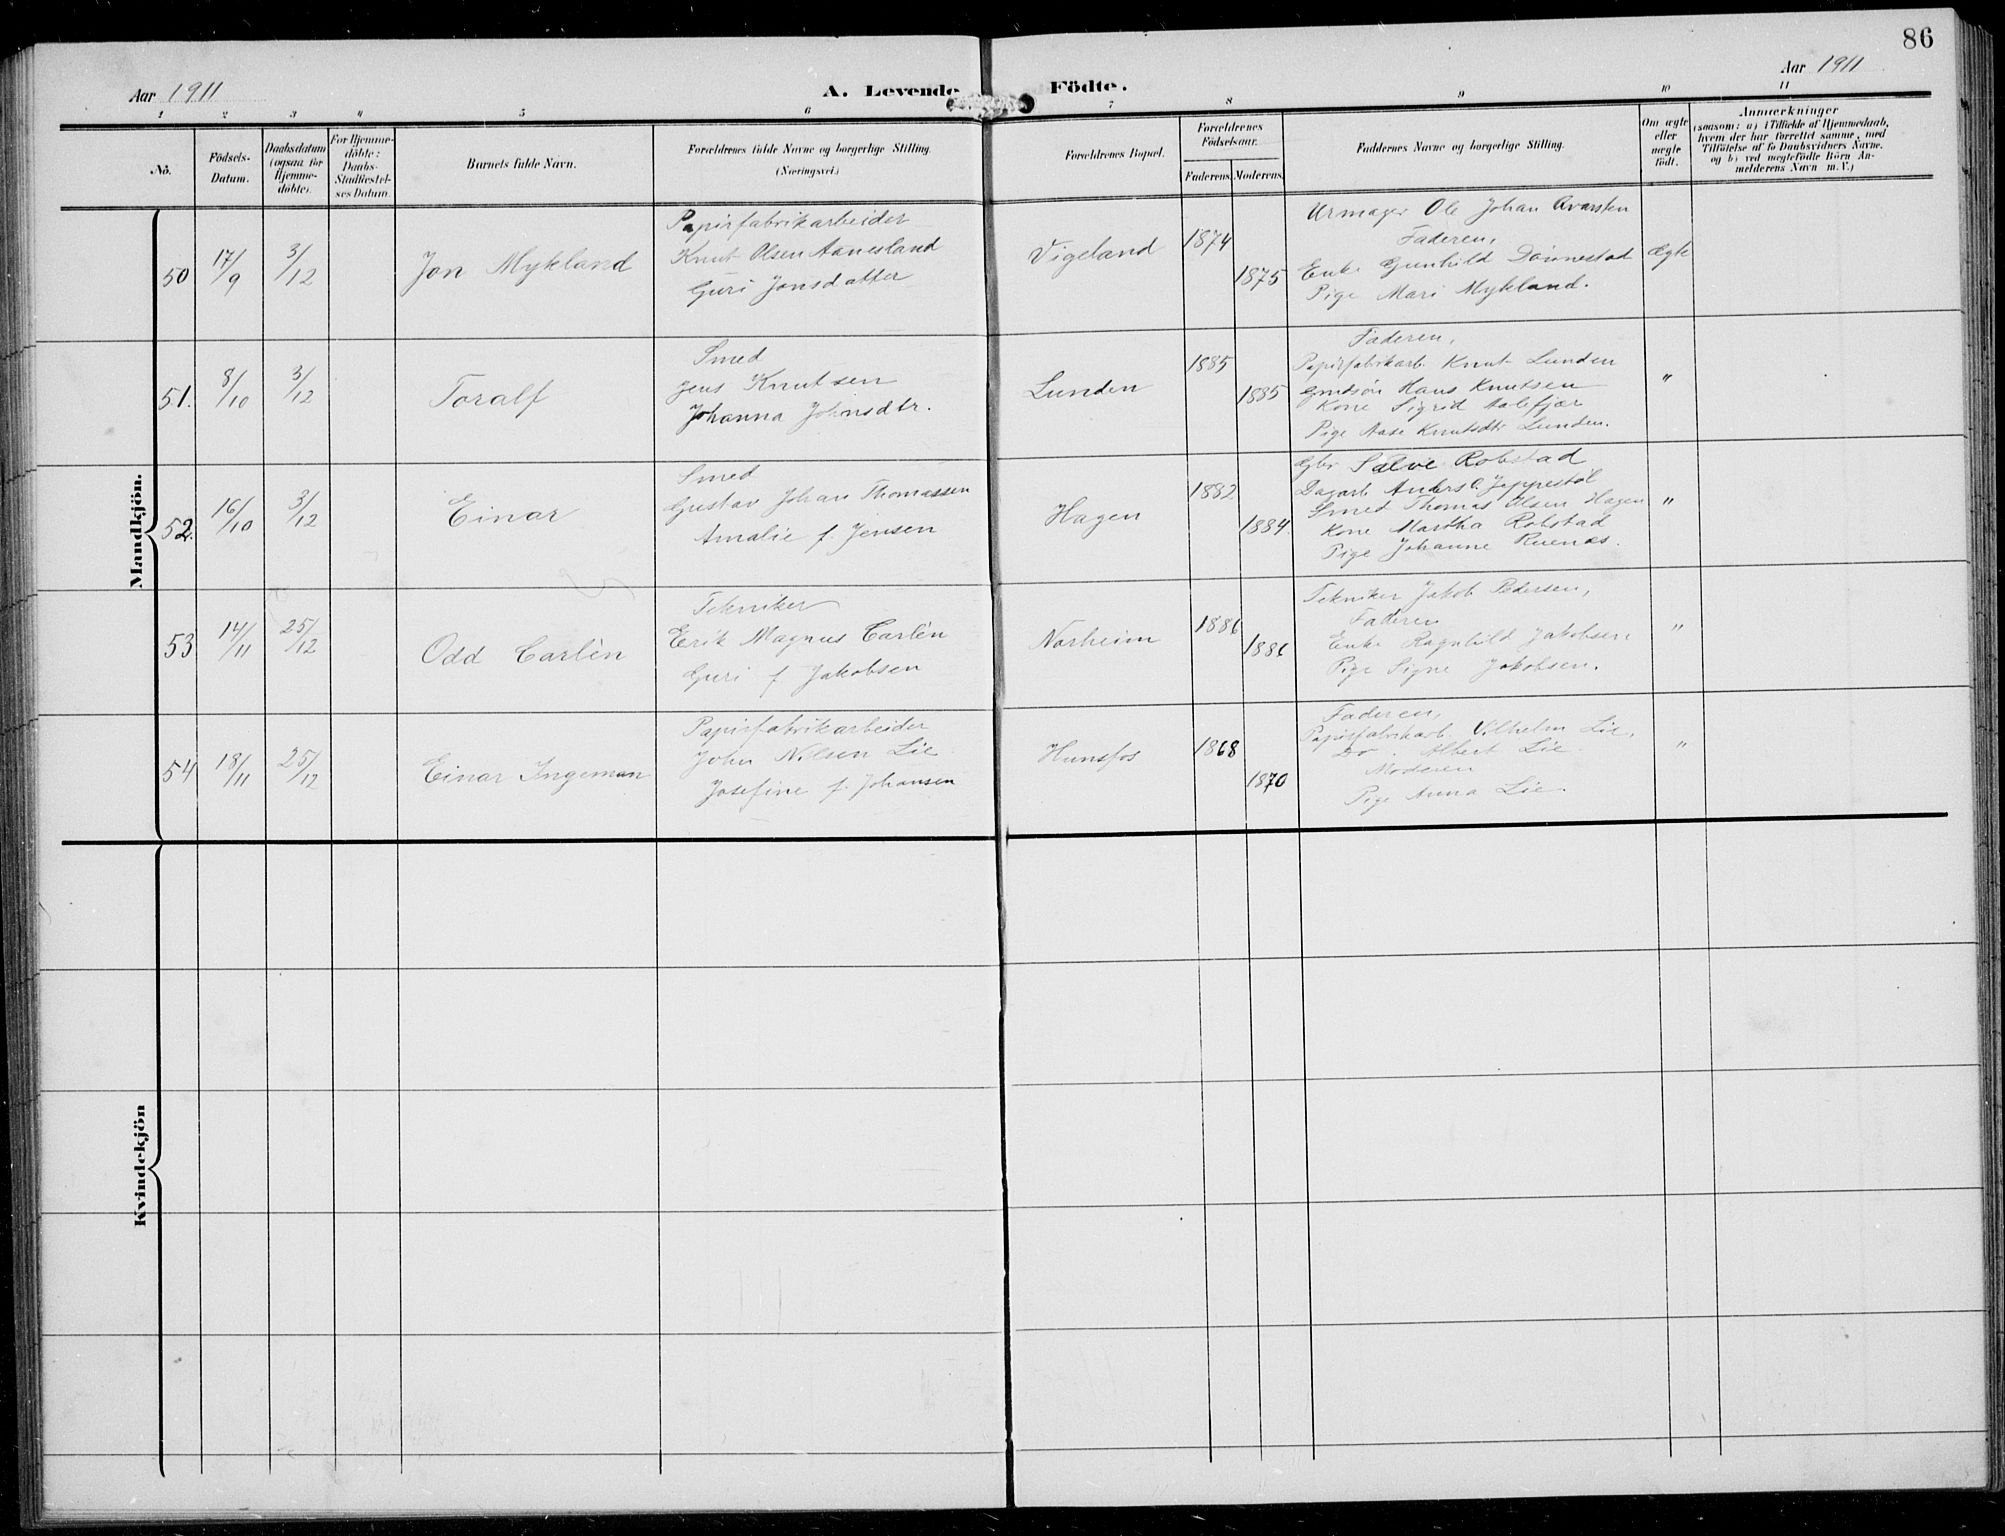 86
Aar 1911
A. Levende Födte.
Aar 1911
1 2 3 4 5 6 7 8 9 10 11
No.
Födsels-
Datum.
Daabsdatum
(ogsaa for
Hjemme-
döbte).
For Hjemme-
döbte:
Daabs-
Stadfæstel-
ses Datum.
Barnets fulde Navn.
Forældrenes fulde Navne og borgerlige Stilling.
(Næringsvei.)
Forældrenes Bopæl.
Forældrenes
Födselsaar.
Faderens Moderens
Faddernes Navne og borgerlige Stilling.
Om ægte
eller
uægte
födt.
Anmærkninger
(saasom: a) i Tilfælde af Hjemmedaab,
hvem der har forrettet samme, med
Tilföielse af to Daabsvidners Navne,
og b) ved uægtefödte Börn An-
melderens Navn m. V.)
Mandkjön.
50
17/9
3/12
Jon Mykland
Papirfabrikarbeider
Knut Olsen Aanesland
Guri Jonsdatter
Vigeland
1874
1875
Urmager Ole Johan
Faderen,
Enke Gunhild Dönnestad
Pige Mari Mykland.
Ægte
51.
8/10
3/12
Toralf
Smed
Jens Knutsen
Johanna Johnsdtr.
Lunden
1885
1885
Faderen,
Papirfabrikarb. Knut Lunden
Hans Knutsen
Kone Sigrid Aalefjær
Pige Aase Knutsdtr Lunden.
"
52.
16/10
3/12
Einar
Smed
Gustav Johan Thomassen
Amalie f. Jensen
Hagen
1882
1884.
Gbr Salve Robstad
Dagarb Anders O. Jeppestøl
Smed Thomas Olsen Hagen
Kone Martha Robstad
Pige Johanne
"
53
14/11
25/12
Odd Carlèn
Tekniker
Erik Magnus Carlèn
Guri f Jakobsen
Norheim
1886
1886
Tekniker Jakob Pedersen,
Faderen
Enke Ragnhild Jakobsen
Pige Signe Jakobsen.
"
54
18/11
25/12
Einar Ingeman
Papirfabrikarbeider
John Nilsen Lie
Josefine f. Johansen
Hunsfos
1868
1870
Faderen,
Papirfabrikarb. Vilhelm Lie,
Do. Albert Lie.
Moderen
Pige Anna Lie.
"
Kvindekjön